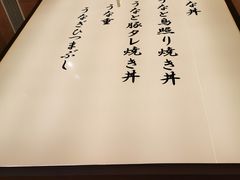 な丼
うなと鳥照り焼き丼
うなと豚タレ焼き丼
うな重
うなぎひつまぶし